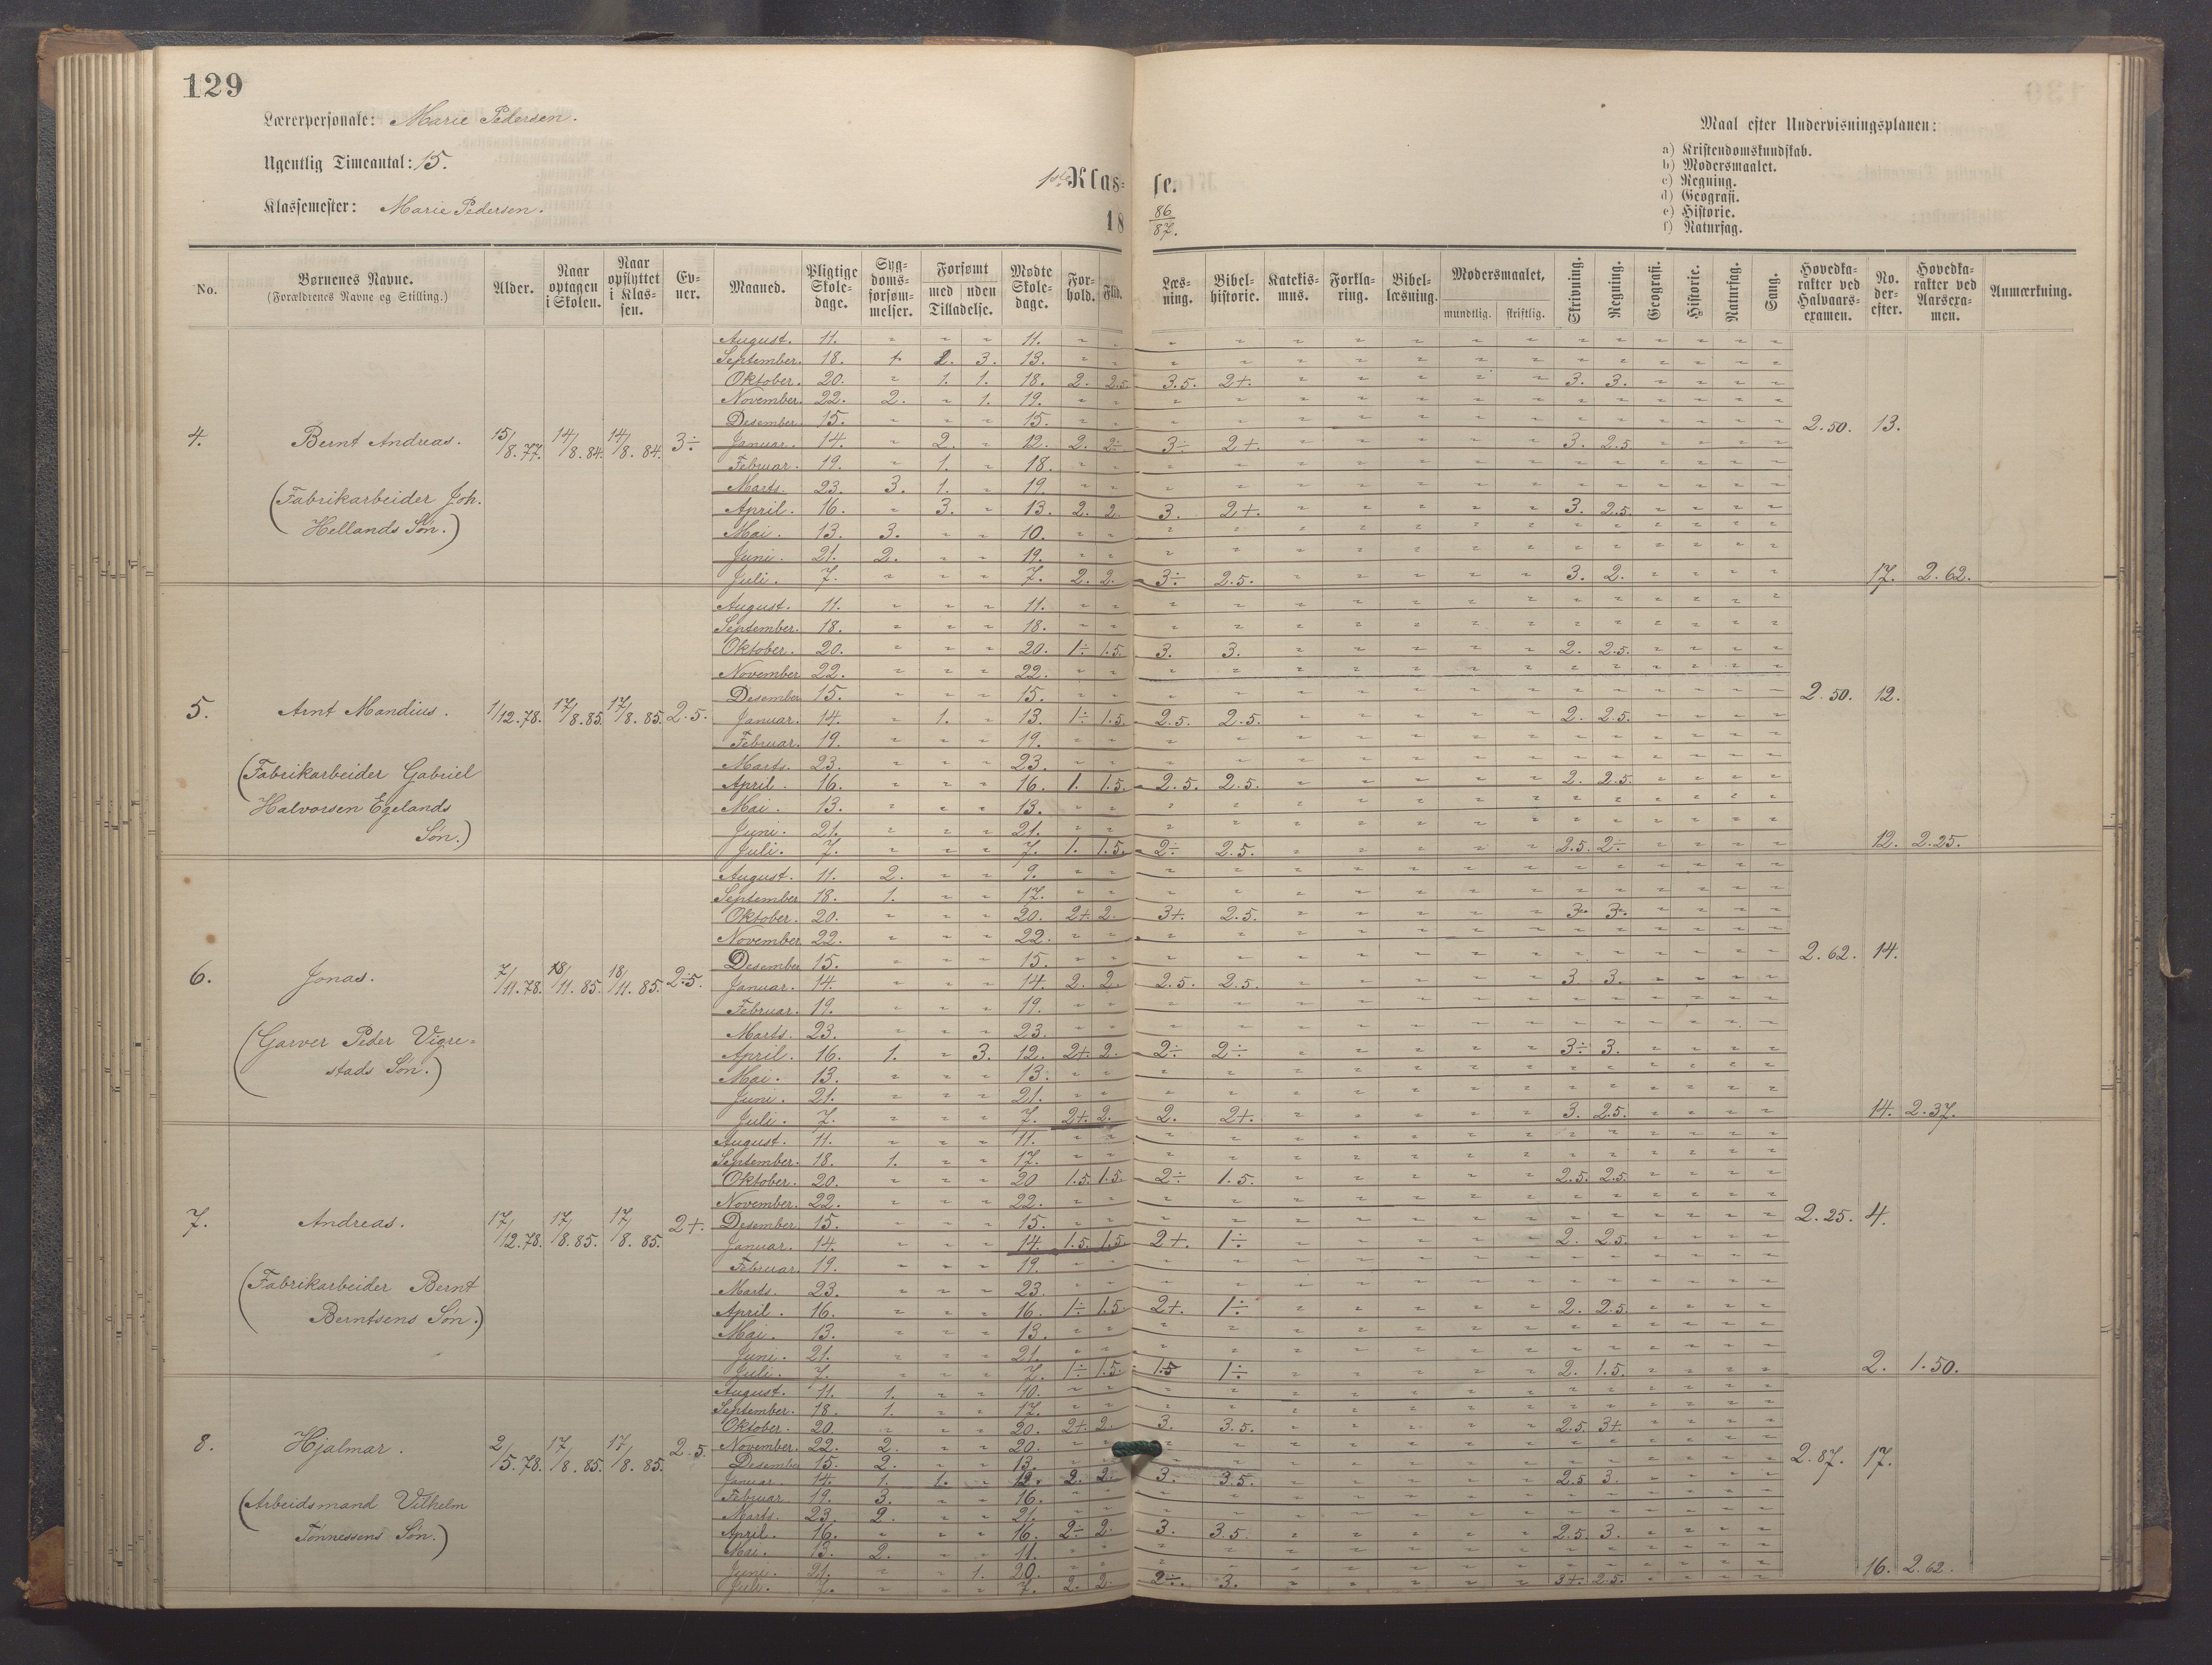 129
Lærerpersonale: Marie Pedersen.
Ugentlig Timeantal: 15.
Klassemester: Marie Pedersen.
1ste Klasse.
18 86/87.
Maal efter Undervisningsplanen:
a) Kristendomskundskab.
b) Modersmaalet.
c) Regning.
d) Geografi.
e) Historie.
f) Natursag.
No. | Børnenes Navne. (Forældrenes Navne og Stilling.) | Alder. | Naar optagen i Skolen. | Naar opflyttet i Klassen. | Evner. | Maaned. | Pligtige Skoledage. | Sygdomsforsømmelser. | Forsømt med uden Tilladelse. | Mødte Skoledage. | Forhold. | Flid. | Læsning. | Bibelhistorie. | Katekismus. | Forklaring. | Bibellæsning. | Modersmaalet, mundtlig. skriftlig. | Skrivning. | Regning. | Geografi. | Historie. | Natursag. | Sang. | Hovedkarakter ved Halvaarsexamen. | No. derefter. | Hovedkarakter ved Aarsexamen. | Anmærkning.
4. Bernt Andreas. 15/8.77. 14/8.84. 14/8.84. 3÷ 2.50. 13.
(Fabrikarbeider Joh.
Hellands Søn.)
August. 11. " " " 11.
September. 18. 1. 3. 13.
Oktober. 20. " 1. 1. 18. 2. 2.5. 3.5. 2+. 3. 3.
November. 22. 2. " 1. 19.
Desember. 15. " " " 15.
Januar. 14. " 2. " 12. 2. 2÷ 3÷ 2+. 3. 2.5.
Februar. 19. " 1. " 18.
Marts. 23. 3. 1. " 19.
April. 16. " 3. " 13. 2. 2. 3. 2+. 3. 2.5.
Mai. 13. 3. " " 10.
Juni. 21. 2. " " 19.
Juli. 7. " " " 7. 2. 2. 3÷ 2.5. 3. 2. 17. 2.62.
5. Arnt Mandius. 1/12.78. 17/8.85. 17/8.85. 2.5. 2.50. 12.
(Fabrikarbeider Gabriel
Halvorsen Egelands
Søn.)
August. 11. " " " 11.
September. 18. " " " 18.
Oktober. 20. " " " 20. 1÷ 1.5. 3. 3. 2. 2.5.
November. 22. " " " 22.
Desember. 15. " " " 15.
Januar. 14. " 1. " 13. 1÷ 1.5. 2.5. 2.5. 2. 2.5.
Februar. 19. " " " 19.
Marts. 23. " " " 23.
April. 16. " " " 16. 1. 1.5. 2.5. 2.5. 2. 2.5.
Mai. 13. " " " 13.
Juni. 21. " " " 21.
Juli. 7. " " " 7. 1. 1.5. 2÷ 2.5. 2.5. 2÷ 12. 2.25.
6. Jonas. 7/11.78. 18/11.85. 18/11.85. 2.5. 2.62. 14.
(Garver Peder Vigre=
stads Søn.)
August. 11. 2. " " 9.
September. 18. 1. " " 17.
Oktober. 20. " " " 20. 2+. 2. 3+. 2.5. 3. 3.
November. 22. " " " 22.
Desember. 15. " " " 15.
Januar. 14. " " " 14. 2. 2. 2.5. 2.5. 3. 3.
Februar. 19. " " " 19.
Marts. 23. " " " 23.
April. 16. 1. " 3. 12. 2+. 2. 2÷ 2÷ 3÷ 3.
Mai. 13. " " " 13.
Juni. 21. " " " 21.
Juli. 7. " " " 7. 2+. 2. 2. 2+. 3. 2.5. 14. 2.37.
7. Andreas. 17/12.78. 17/8.85. 17/8.85. 2+. 2.25. 4.
(Fabrikarbeider Bernt
Berntsens Søn.)
August. 11. " " " 11.
September. 18. 1. " " 17.
Oktober. 20. " " " 20 1.5. 1.5. 2÷ 1.5. 2.5. 2.5.
November. 22. " " " 22.
Desember. 15. " " " 15.
Januar. 14. " " " 14. 1.5. 1.5. 2+. 1÷ 2. 2.5.
Februar. 19. " " " 19.
Marts. 23. " " " 23.
April. 16. " " " 16. 1÷ 1.5 2+. 1÷ 2. 2.5.
Mai. 13. " " " 13.
Juni. 21. " " " 21.
Juli. 7. " " " 7. 1÷ 1.5. 1.5 1÷ 2. 1.5. 2. 1.50.
8. Hjalmar. 2/5.78. 17/8.85. 17/8.85. 2.5. 2.87. 17.
(Arbeidsmand Vilhelm
Tønnessens Søn.)
August. 11. 1. " " 10.
September. 18. 1. " " 17.
Oktober. 20. " " " 20. 2+. 2. 3. 3.5. 2.5. 3+.
November. 22. 2. " " 20.
Desember 15. 2. " " 13.
Januar. 14. 1. 1. " 12. 2. 2. 3. 3.5. 2.5 3.
Februar. 19. 3. " " 16.
Marts. 23. 2. " " 21.
April. 16. " " " 16. 2÷ 2. 3. 3.5. 2.5. 3.
Mai. 13. 2. " " 11.
Juni. 21. " " 1. 20.
Juli. 7. " " " 7. 2. 2. 2÷. 3. 3+. 2.5. 16. 2.62.